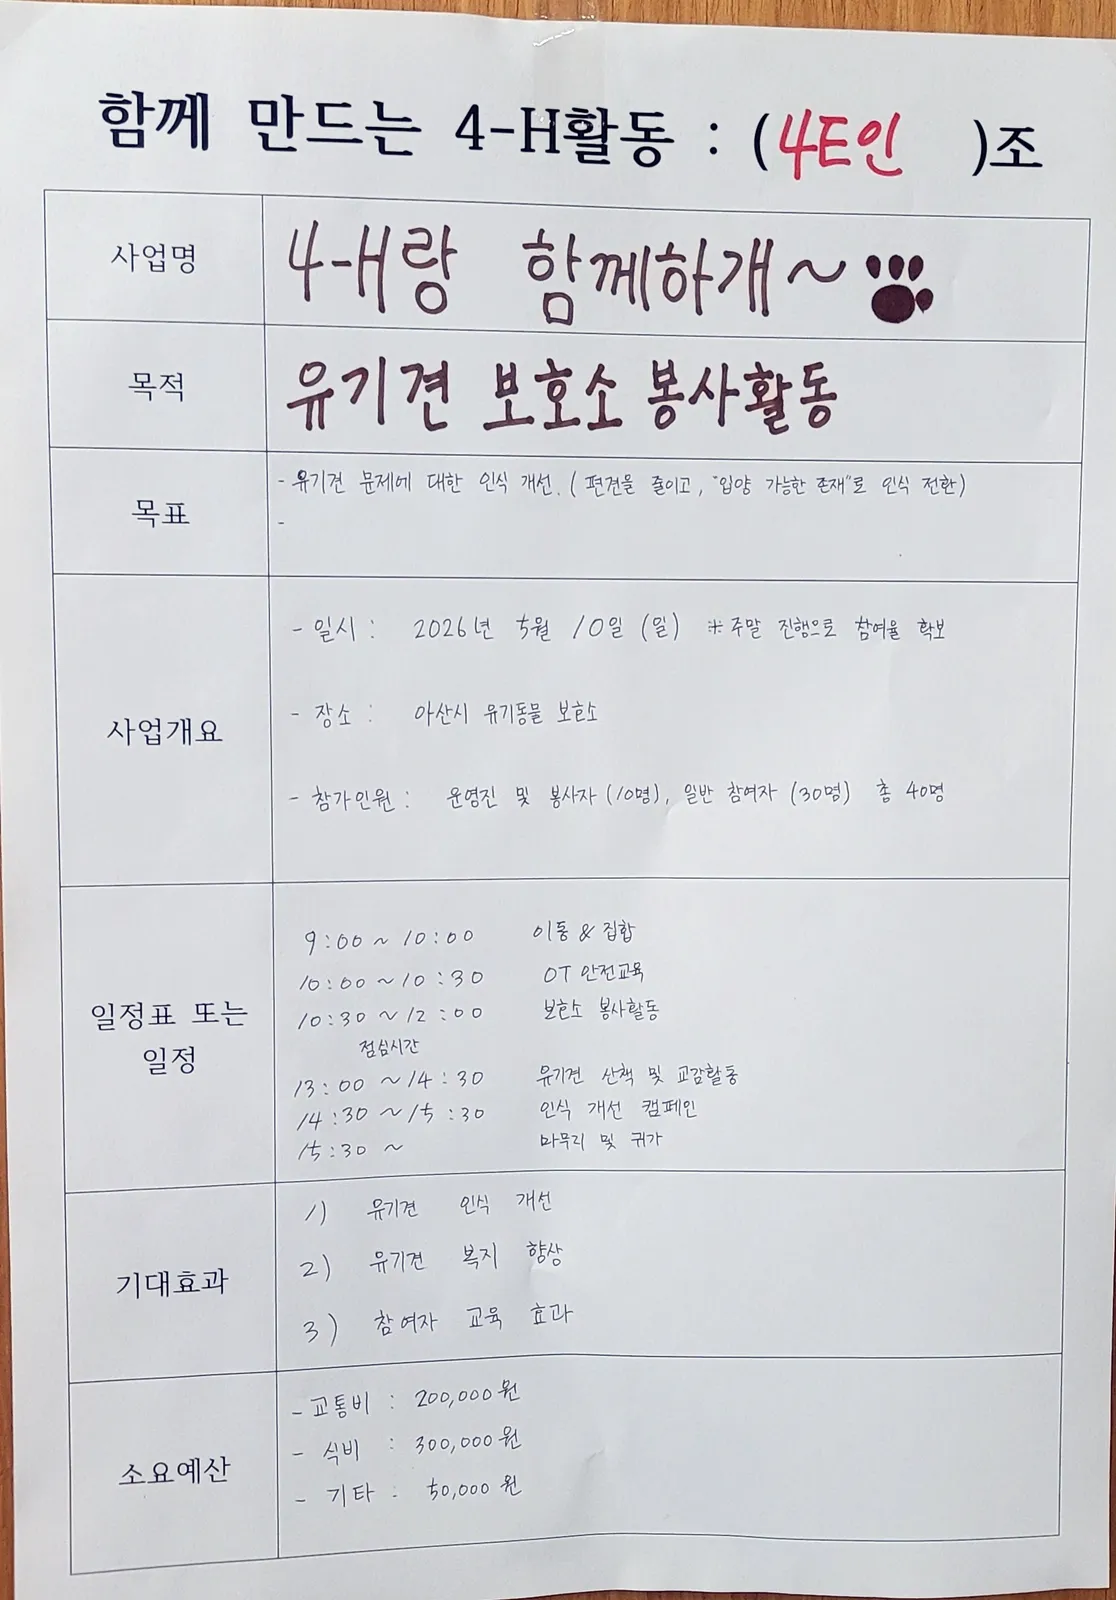 함께 만드는 4-H활동 : (4E인 )조
사업명
4-H랑 함께하개~
목적
유기견 보호소 봉사활동
목표
- 유기견 문제에 대한 인식 개선. ( 편견을 줄이고, "입양 가능한 존재"로 인식 전환)
-
사업개요
- 일시 : 2026년 5월 10일 (일) ※ 주말 진행으로 참여율 확보
- 장소 : 아산시 유기동물 보호소
- 참가인원 : 운영진 및 봉사자 (10명), 일반 참여자 (30명) 총 40명
일정표 또는
일정
9:00 ~ 10:00 이동 & 집합
10:00 ~ 10:30 OT 안전교육
10:30 ~ 12:00 보호소 봉사활동
점심시간
13:00 ~ 14:30 유기견 산책 및 교감활동
14:30 ~ 15:30 인식 개선 캠페인
15:30 ~ 마무리 및 귀가
기대효과
1) 유기견 인식 개선
2) 유기견 복지 향상
3) 참여자 교육 효과
소요예산
- 교통비 : 200,000원
- 식비 : 300,000원
- 기타 : 50,000원